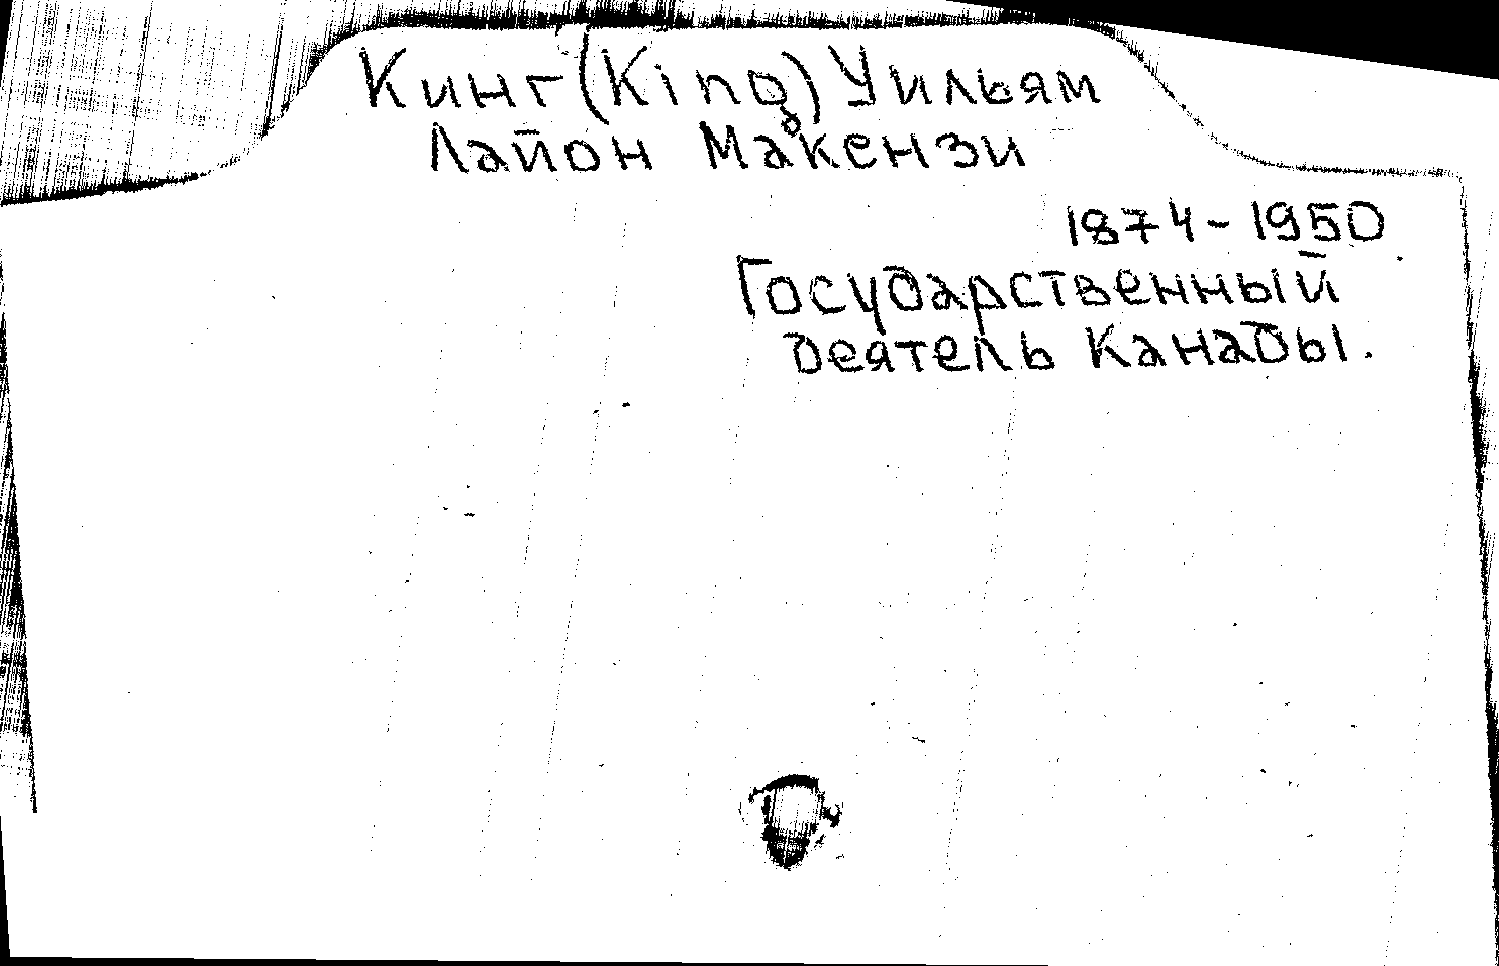 Кинг (King) Уильям
Лайон Макензи
1874-1950
Государственный
деятель Канады.